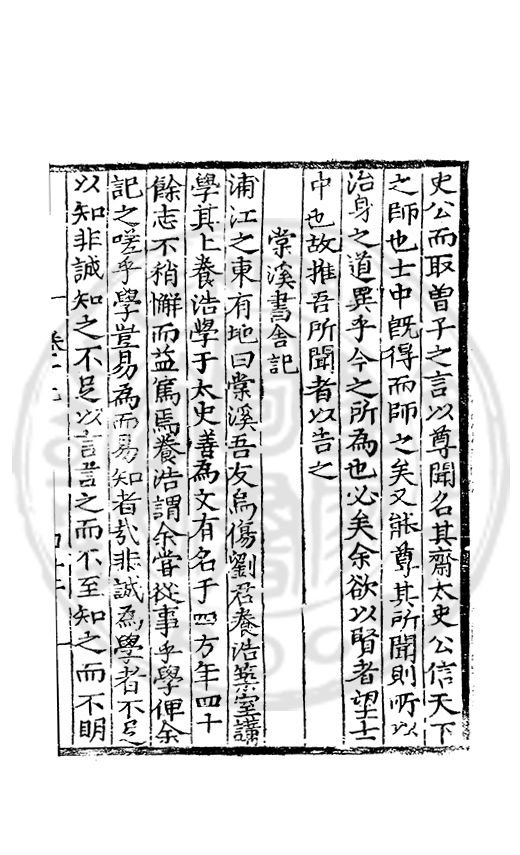 史公而取曽子之言以尊聞名其齋太史公信天下
之師也士中旣得而師之矣又能尊其所聞則所以
治身之道異乎今之所為也必矣余欲以賢者望士
中也故推吾所聞者以告之
棠溪書舎記
浦江之東有地曰棠溪吾友烏傷劉君養浩築室講
學其上養浩學于太史善為文有名于四方年四十
餘志不稍懈而益篤焉養浩謂余甞從事乎學俾余
記之嗟乎學豈易為而易知者㢤非誠為學者不足
以知非誠知之不足以言言之而不至知之而不明